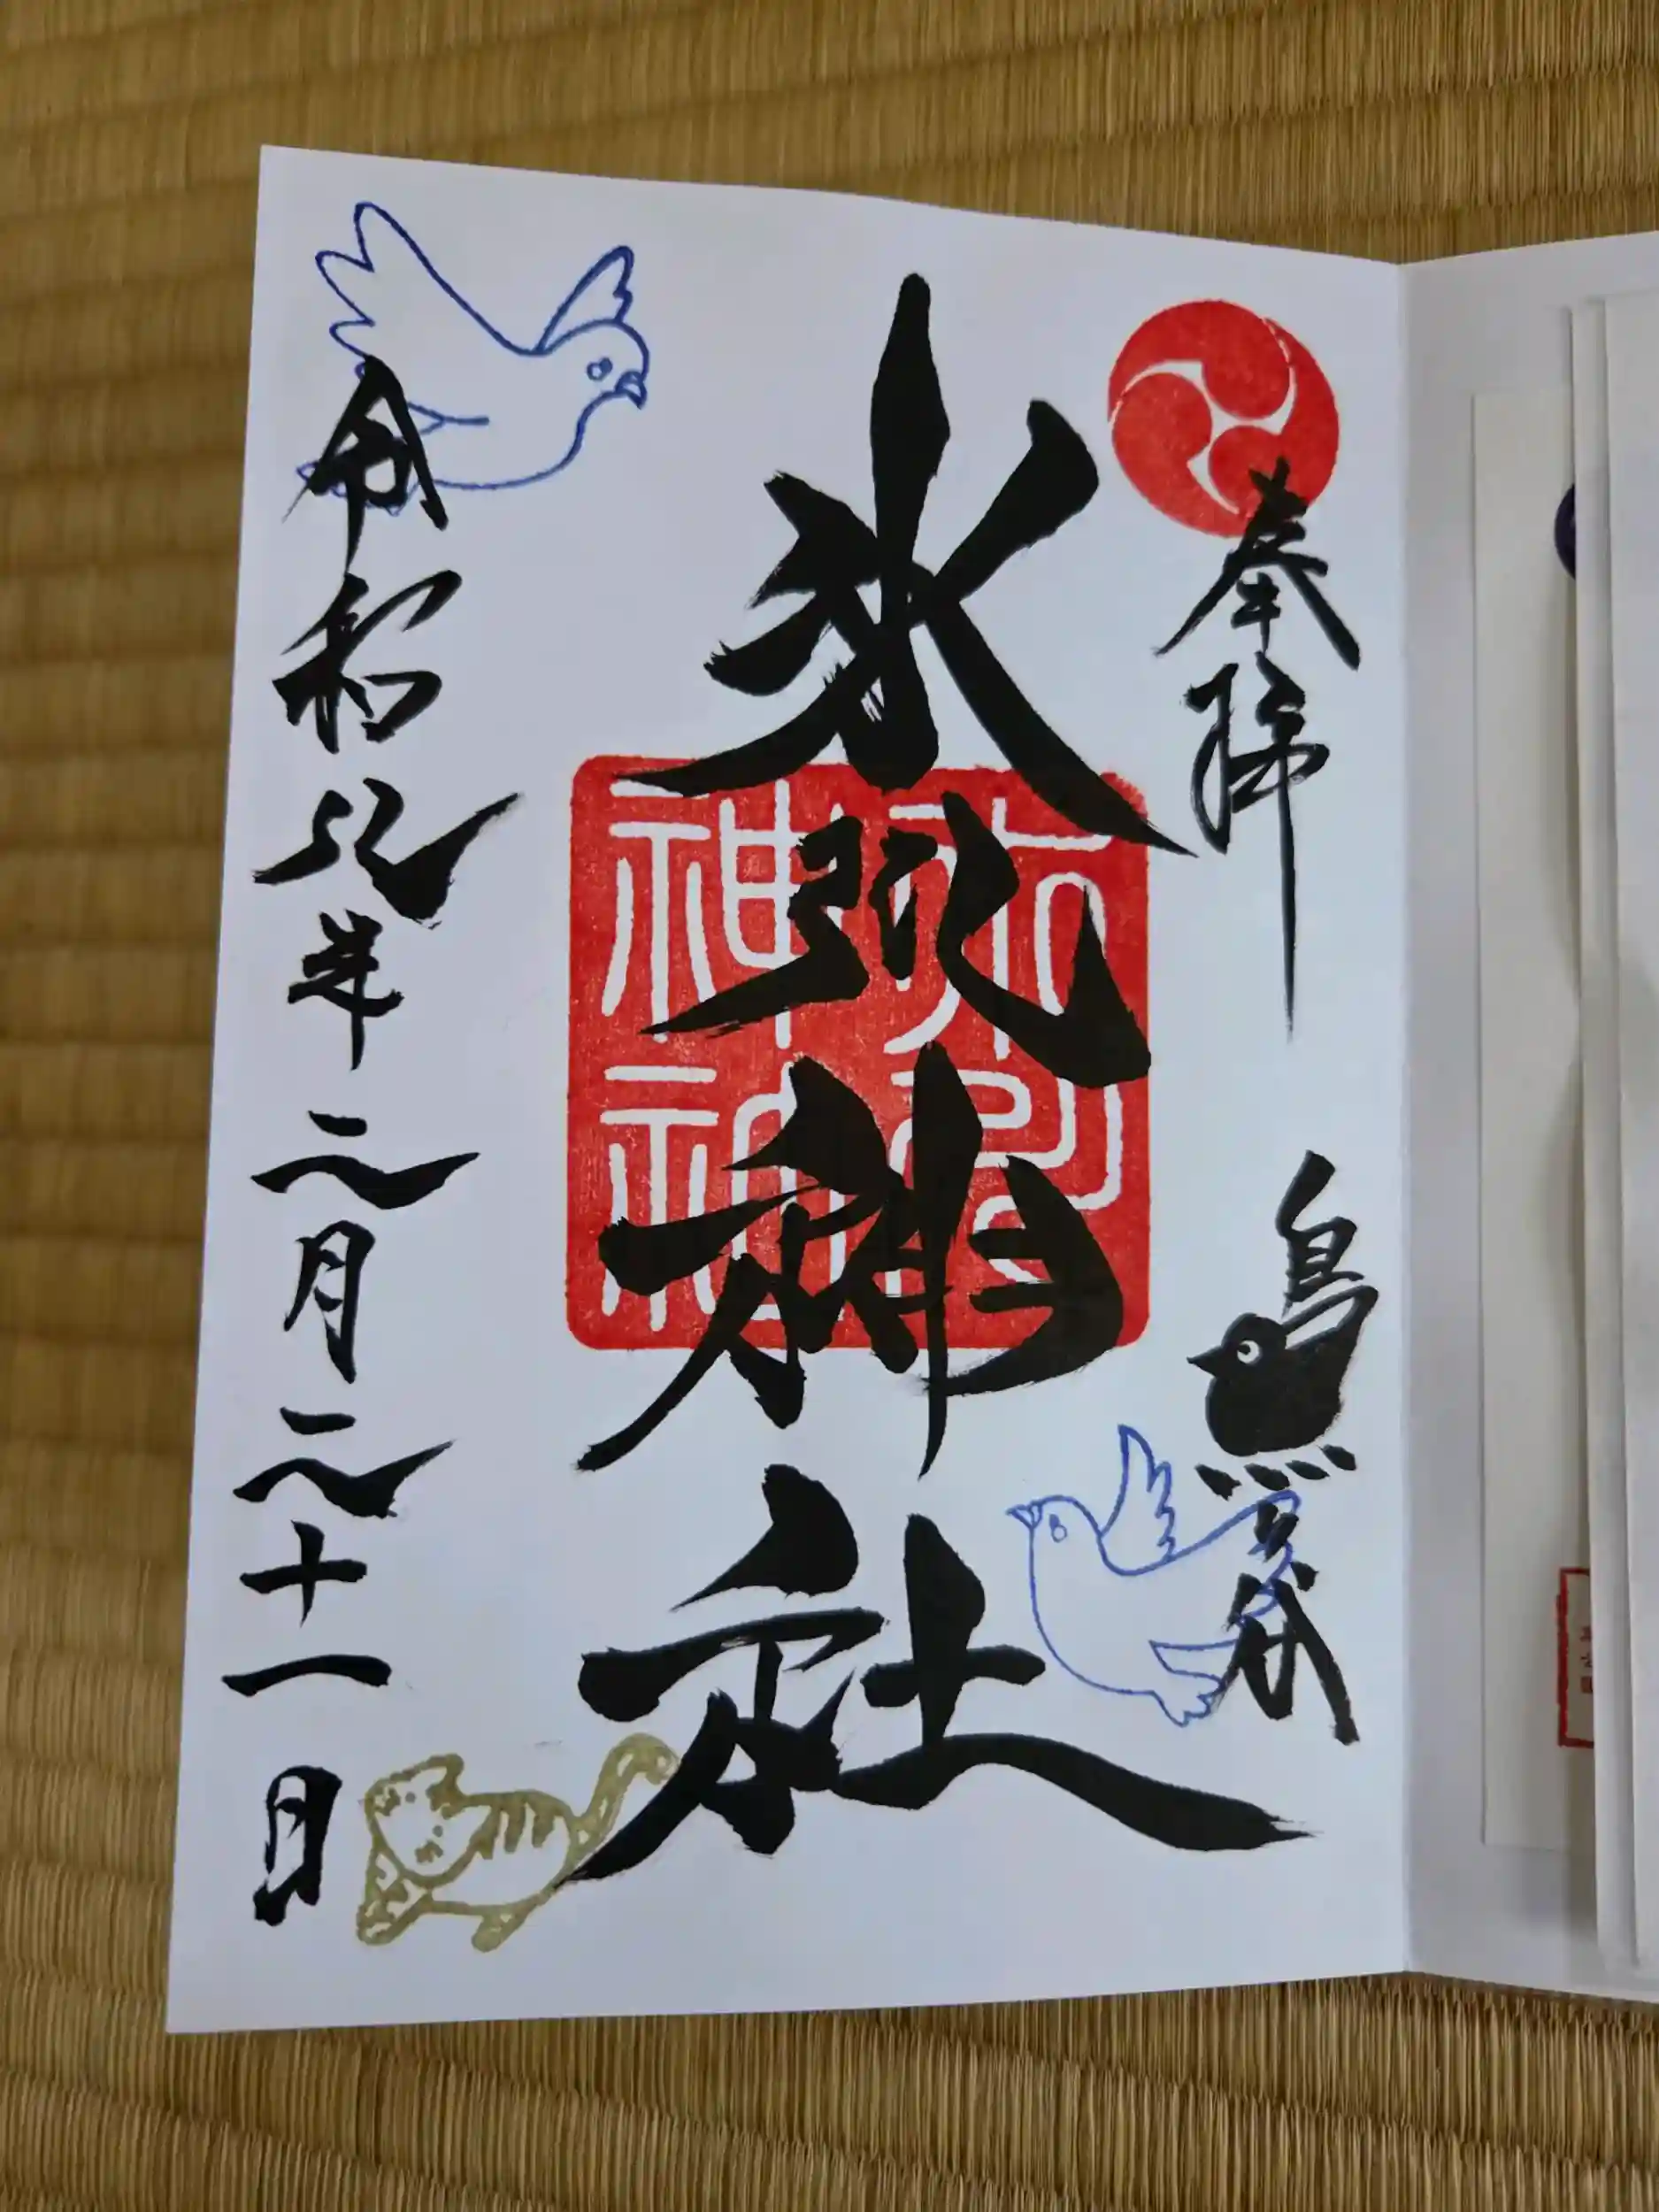 奉拝
鳥
氷川神社
氷川
神社
令和 年二月二十一日